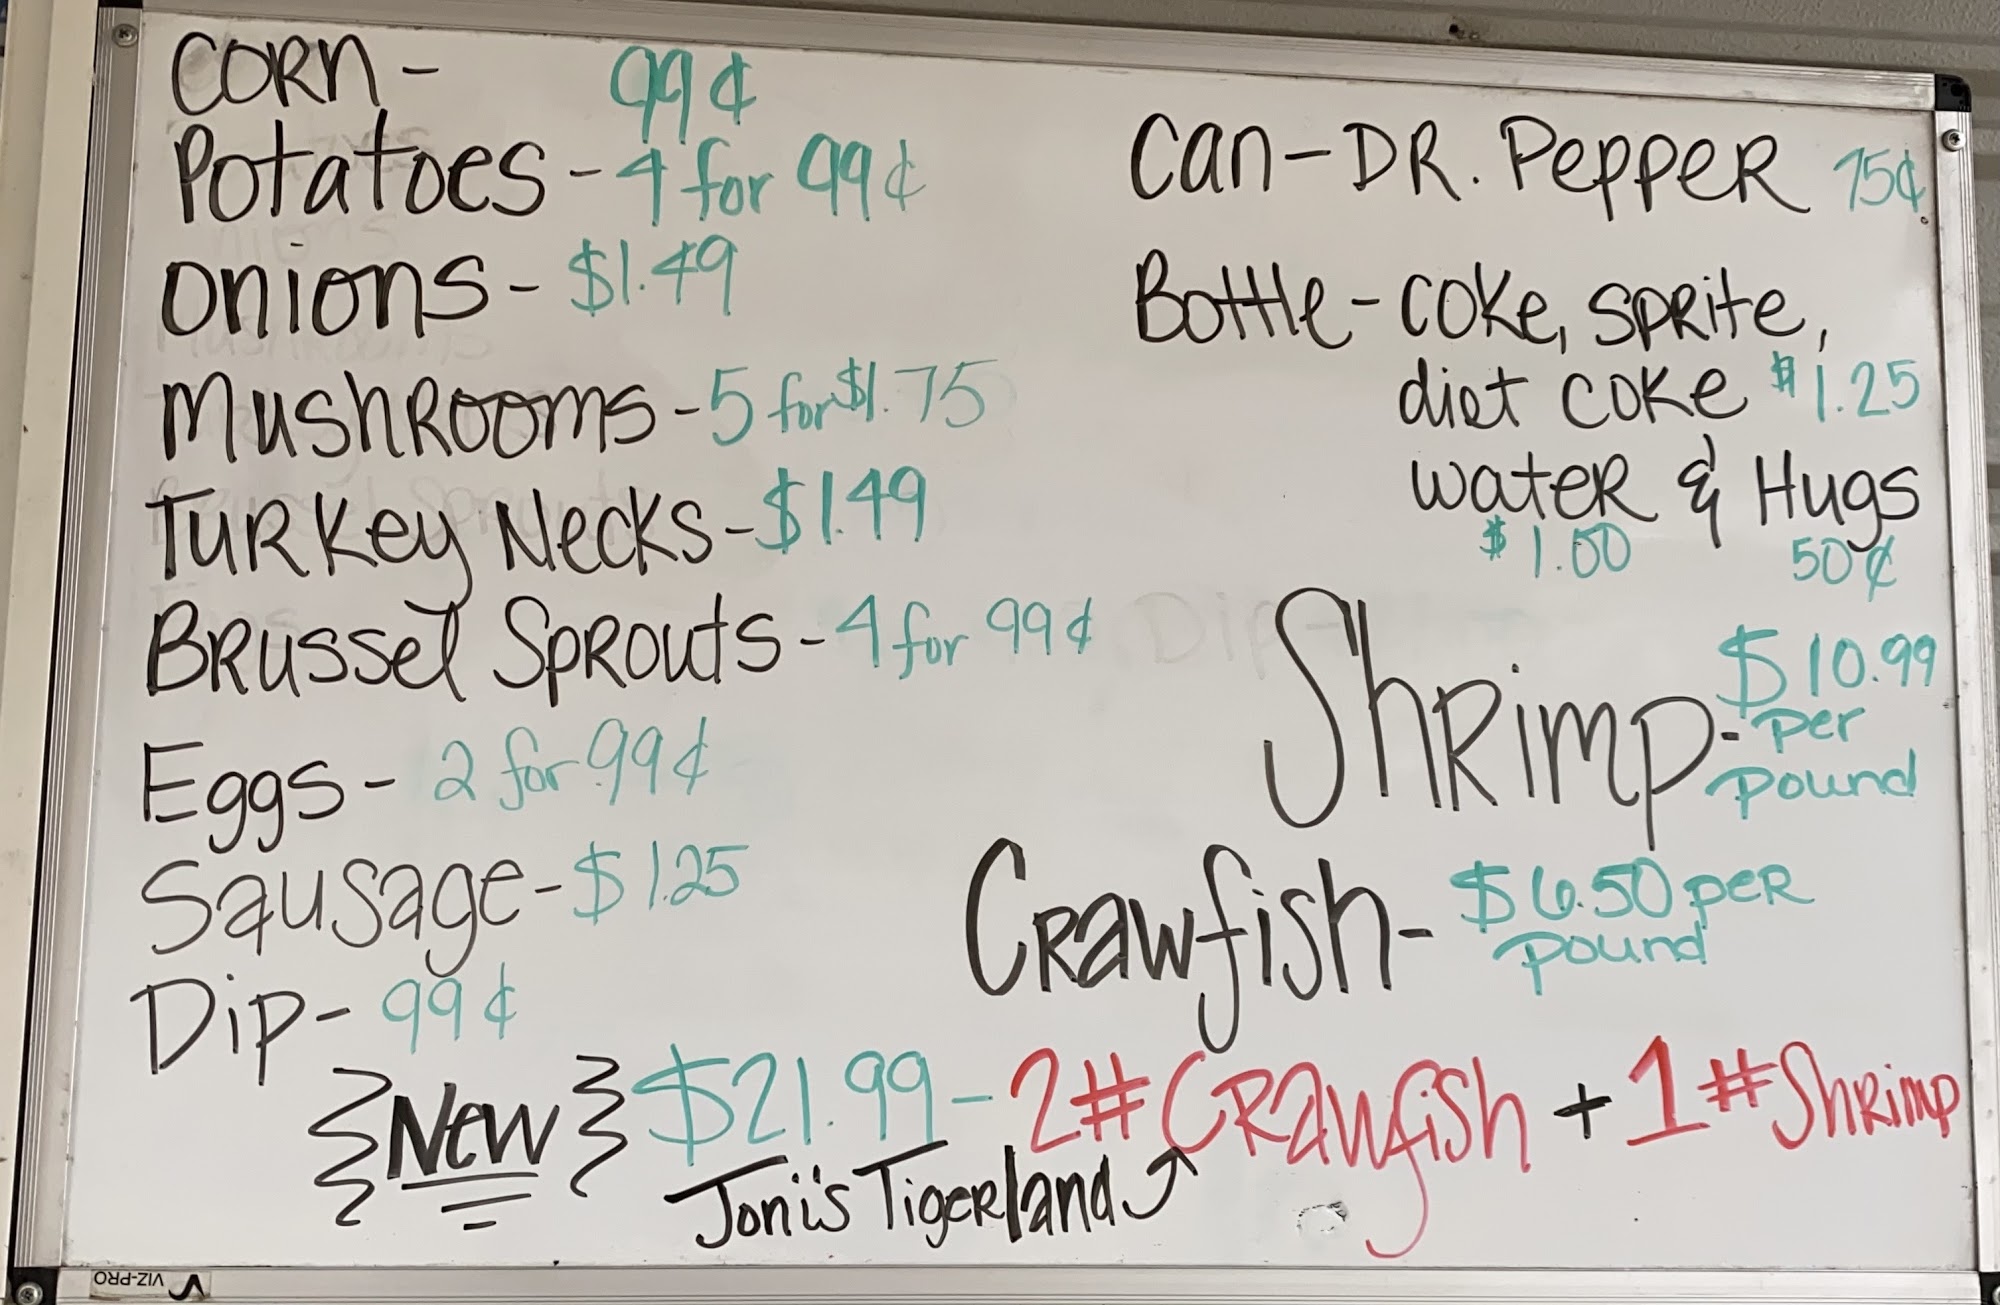 CORN - 99¢
Potatoes - 4 for 99¢
Onions - $1.49
Mushrooms - 5 for $1.75
Turkey Necks - $1.49
Brussel Sprouts - 4 for 99¢
Eggs - 2 for .99¢
Sausage - $1.25
Dip - 99¢
Can - DR. Pepper 75¢
Bottle - Coke, Sprite,
diet Coke $1.25
water & Hugs
$1.00 50¢
Shrimp - $10.99
per
pound
Crawfish - $6.50 per
pound
{New} $21.99 - 2# Crawfish + 1# Shrimp
Joni's Tigerland
VIZ-PRO